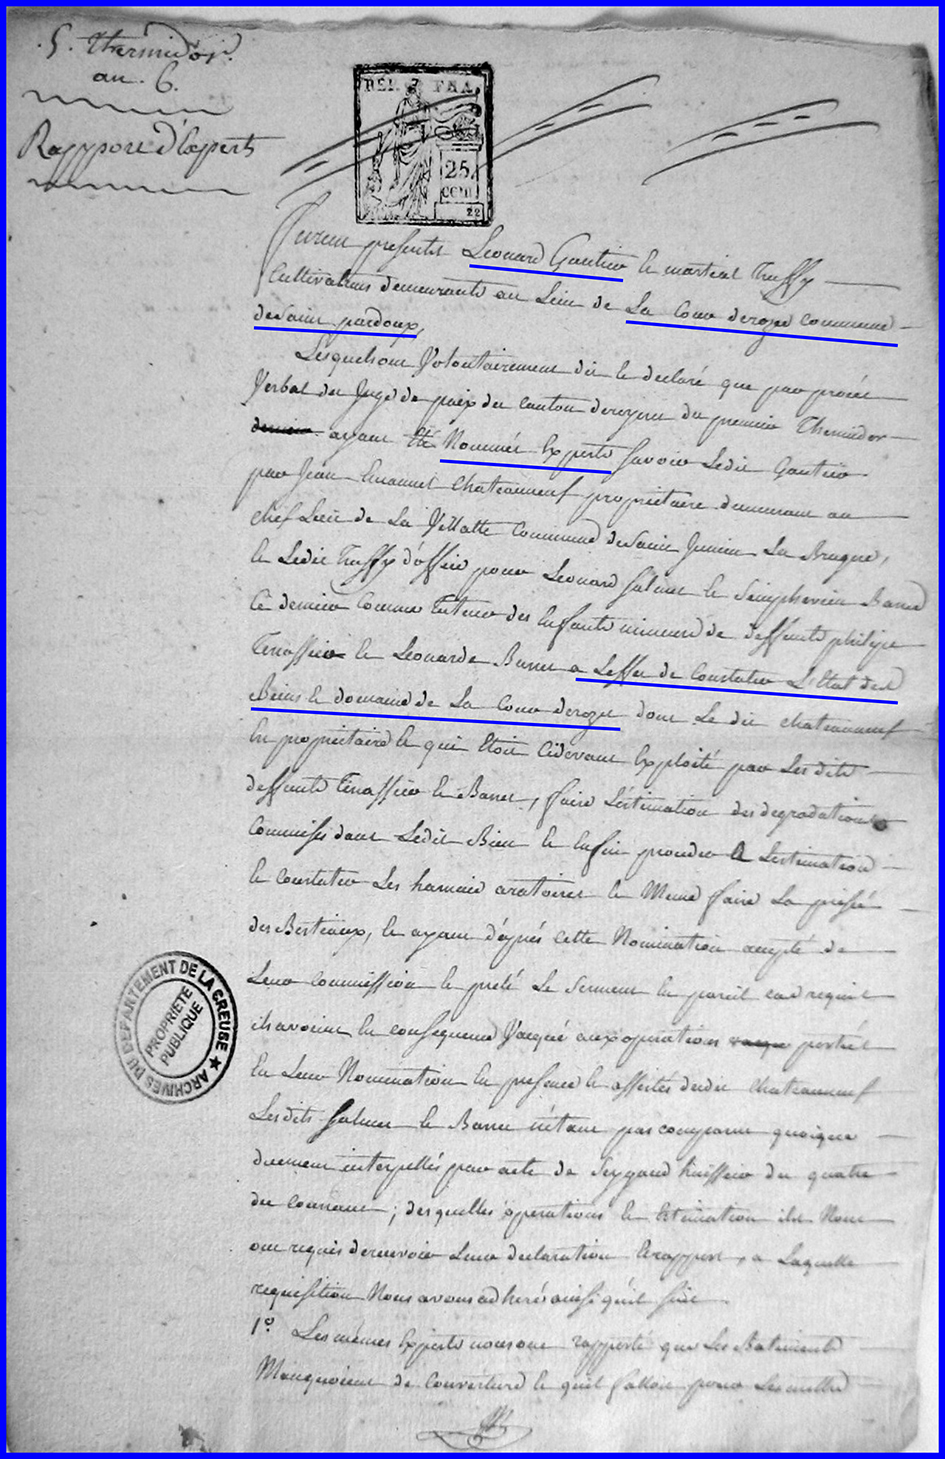 5. thermidor.
an. 6.
Rapport d'Experts
REP. FRA.
25.
CENT.
22
furent presents Leonard Gautier et martial truffy
Cultivateurs demeurants au Lieu de La Cour deroze commune
de Saint pardoux,
Lesquels ont Volontairement dit et declaré que par procés
Verbal du Juge de paix du canton deroyere du premier Thermidor
ayant été Nommés Experts Savoir Ledit Gautier
par Jean Emanuel Chateauneuf proprietaire demeurant au
chef Lieu de La Villatte Commune de Saint Junien La Bruyere,
et Ledit truffy d'office pour Leonard et Barret
Ce dernier Comme tuteur des Enfants mineurs de deffunts philipe
et Leonarde Barret a Leffet de Constater L'Etat des
Biens et domaine de La Cour deroze dont Le dit chateauneuf
En proprietaire et qui Etoit Cidevant Exploité par Les dits
deffunts et Barret, faire L'estimation des degradations
Commises dans Ledit Bien et Enfin prendre a L'estimation
et Constater Les harnois aratoires et Meme faire La prisée
des Bestiaux, et ayant d'après cette Nomination accepté de
Leur commission et preté Le Serment En pareil cas requis
ils avoient En consequence Vaqué aux operations portées
En Leur Nomination En presence et assistés dudit chateauneuf
Les dits et Barret n'étant pas comparus quoique
duement interpellés par acte de huissier du quatre
du courant; desquelles operations et Estimation ils Nous
ont requis de recevoir Leur declaration et rapport, a Laquelle
requisition Nous avons adheré ainsi qu'il suit
1º. Les mêmes Experts nous ont rapporté que Les Batiments
Manquoient de Couverture et qu'il falloit pour Les mettre
ARCHIVES DU DEPARTEMENT DE LA CREUSE ★
PROPRIETE
PUBLIQUE